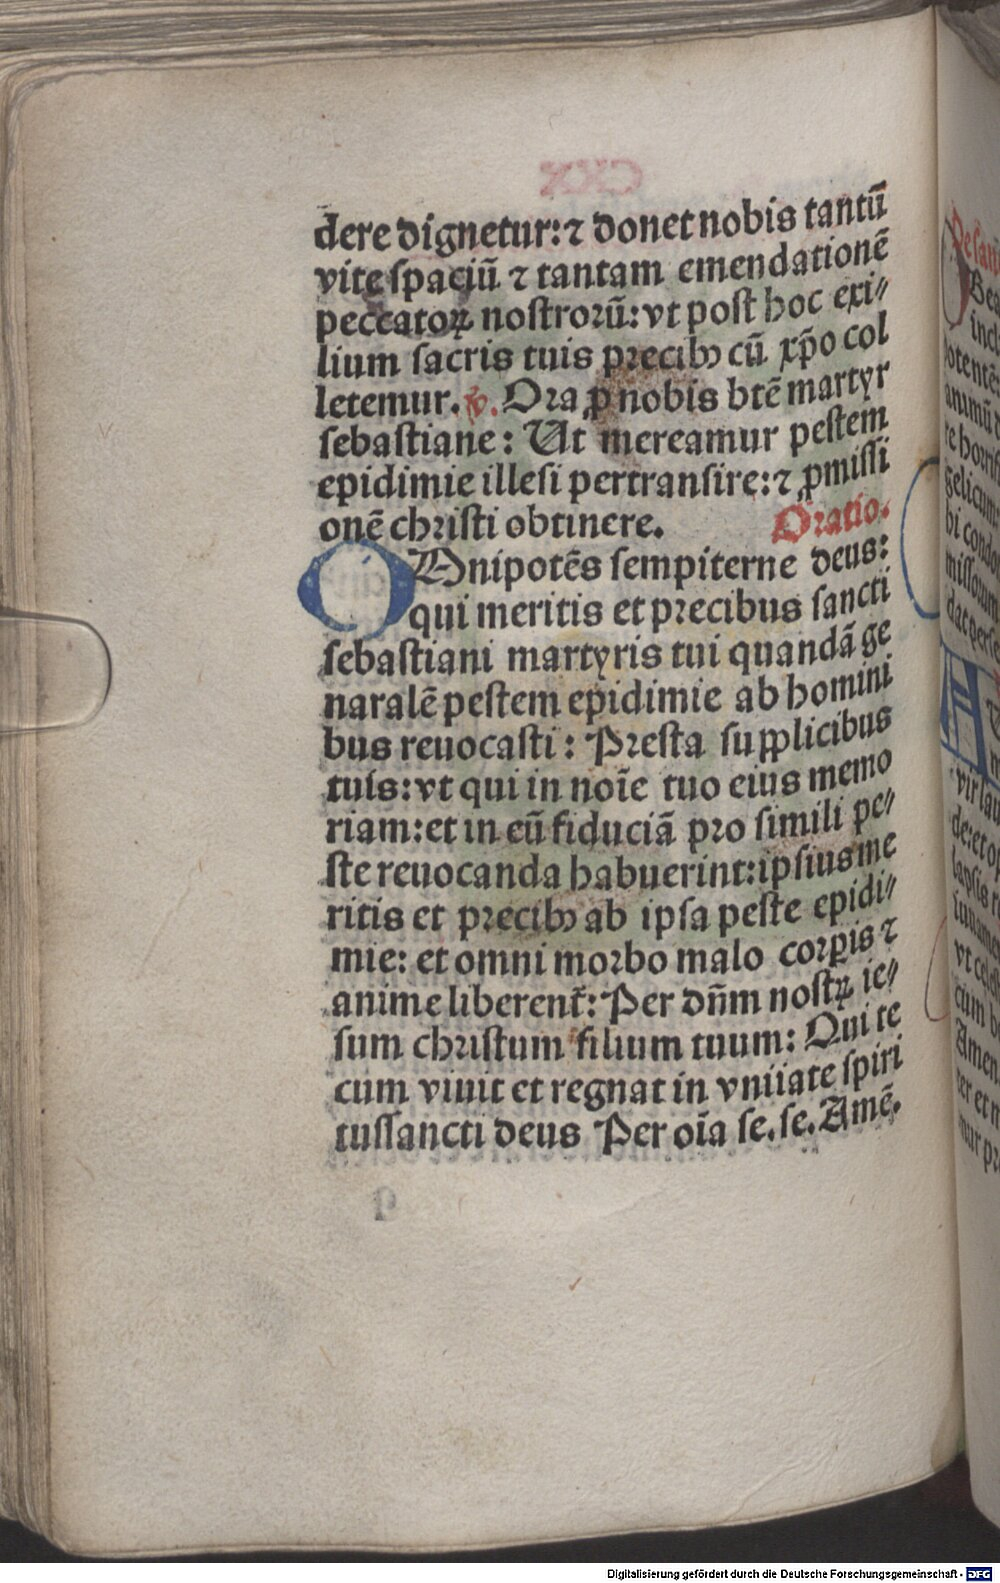 dere dignetur: ⁊ donet nobis tantū
vite spaciū ⁊ tantam emendationē
peccatoꝝ nostroꝛū: vt post hoc exi⸗
lium sacris tuis pꝛecibꝰ cū xp̄o col
letemur. ꝟ. Oꝛa ꝓ nobis btē martyr
sebastiane: Ut mereamur pestem
epidimie illesi pertransire: ⁊ ꝓmissi
onē chꝛisti obtinere. Oratio.
OMnipotēs sempiterne deus:
qui meritis et pꝛecibus sancti
sebastiani martyris tui quandā ge
naralē pestem epidimie ab homini
bus reuocasti: Pꝛesta supplicibus
tuis: vt qui in noīe tuo eius memo
riam: et in eū fiduciā pꝛo simili pe⸗
ste reuocanda habuerint: ipsius me
ritis et pꝛecibꝰ ab ipsa peste epidi⸗
mie: et omni moꝛbo malo coꝛꝑis ⁊
anime liberent᷑: Per dn̄m nostꝝ ie⸗
sum chꝛistum filium tuum: Qui te
cum viuit et regnat in vniiate spiri
tussancti deus Per oīa se. se. Amē.
De san
Bea
incl
potentē
animū d
re horris
gelicum
bi condo
missorum
dat perse
A
vir lau
de: et op
lapsis r
iuuamē
vt celeb
cum b
Amen
ter et m
mur pr
Digitalisierung gefördert durch die Deutsche Forschungsgemeinschaft - DFG